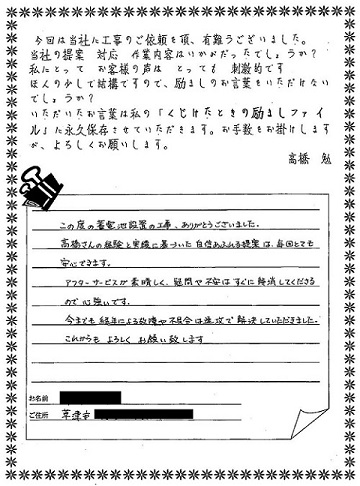 今回は当社に工事のご依頼を頂、有難うございました。
当社の提案　対応　作業内容はいかがだったでしょうか？
私にとって　お客様の声は　とっても　刺激的です
ほんの少しで結構ですので、励ましのお言葉をいただけない
でしょうか？
いただいたお言葉は私の「くじけたときの励ましファイ
ル」に永久保存させていただきます。お手数をお掛けします
が、よろしくお願いします。
高橋　勉
この度の蓄電池設置の工事、ありがとうございました。
高橋さんの経験と実績に基づいた自信あふれる提案は、毎回とても
安心できます。
アフターサービスが素晴しく、疑問や不安はすぐに解消してくださる
ので心強いです。
今までも経年による故障や不具合は速攻で解決していただきました。
これからも よろしく お願い致します
お名前
ご住所　草津市